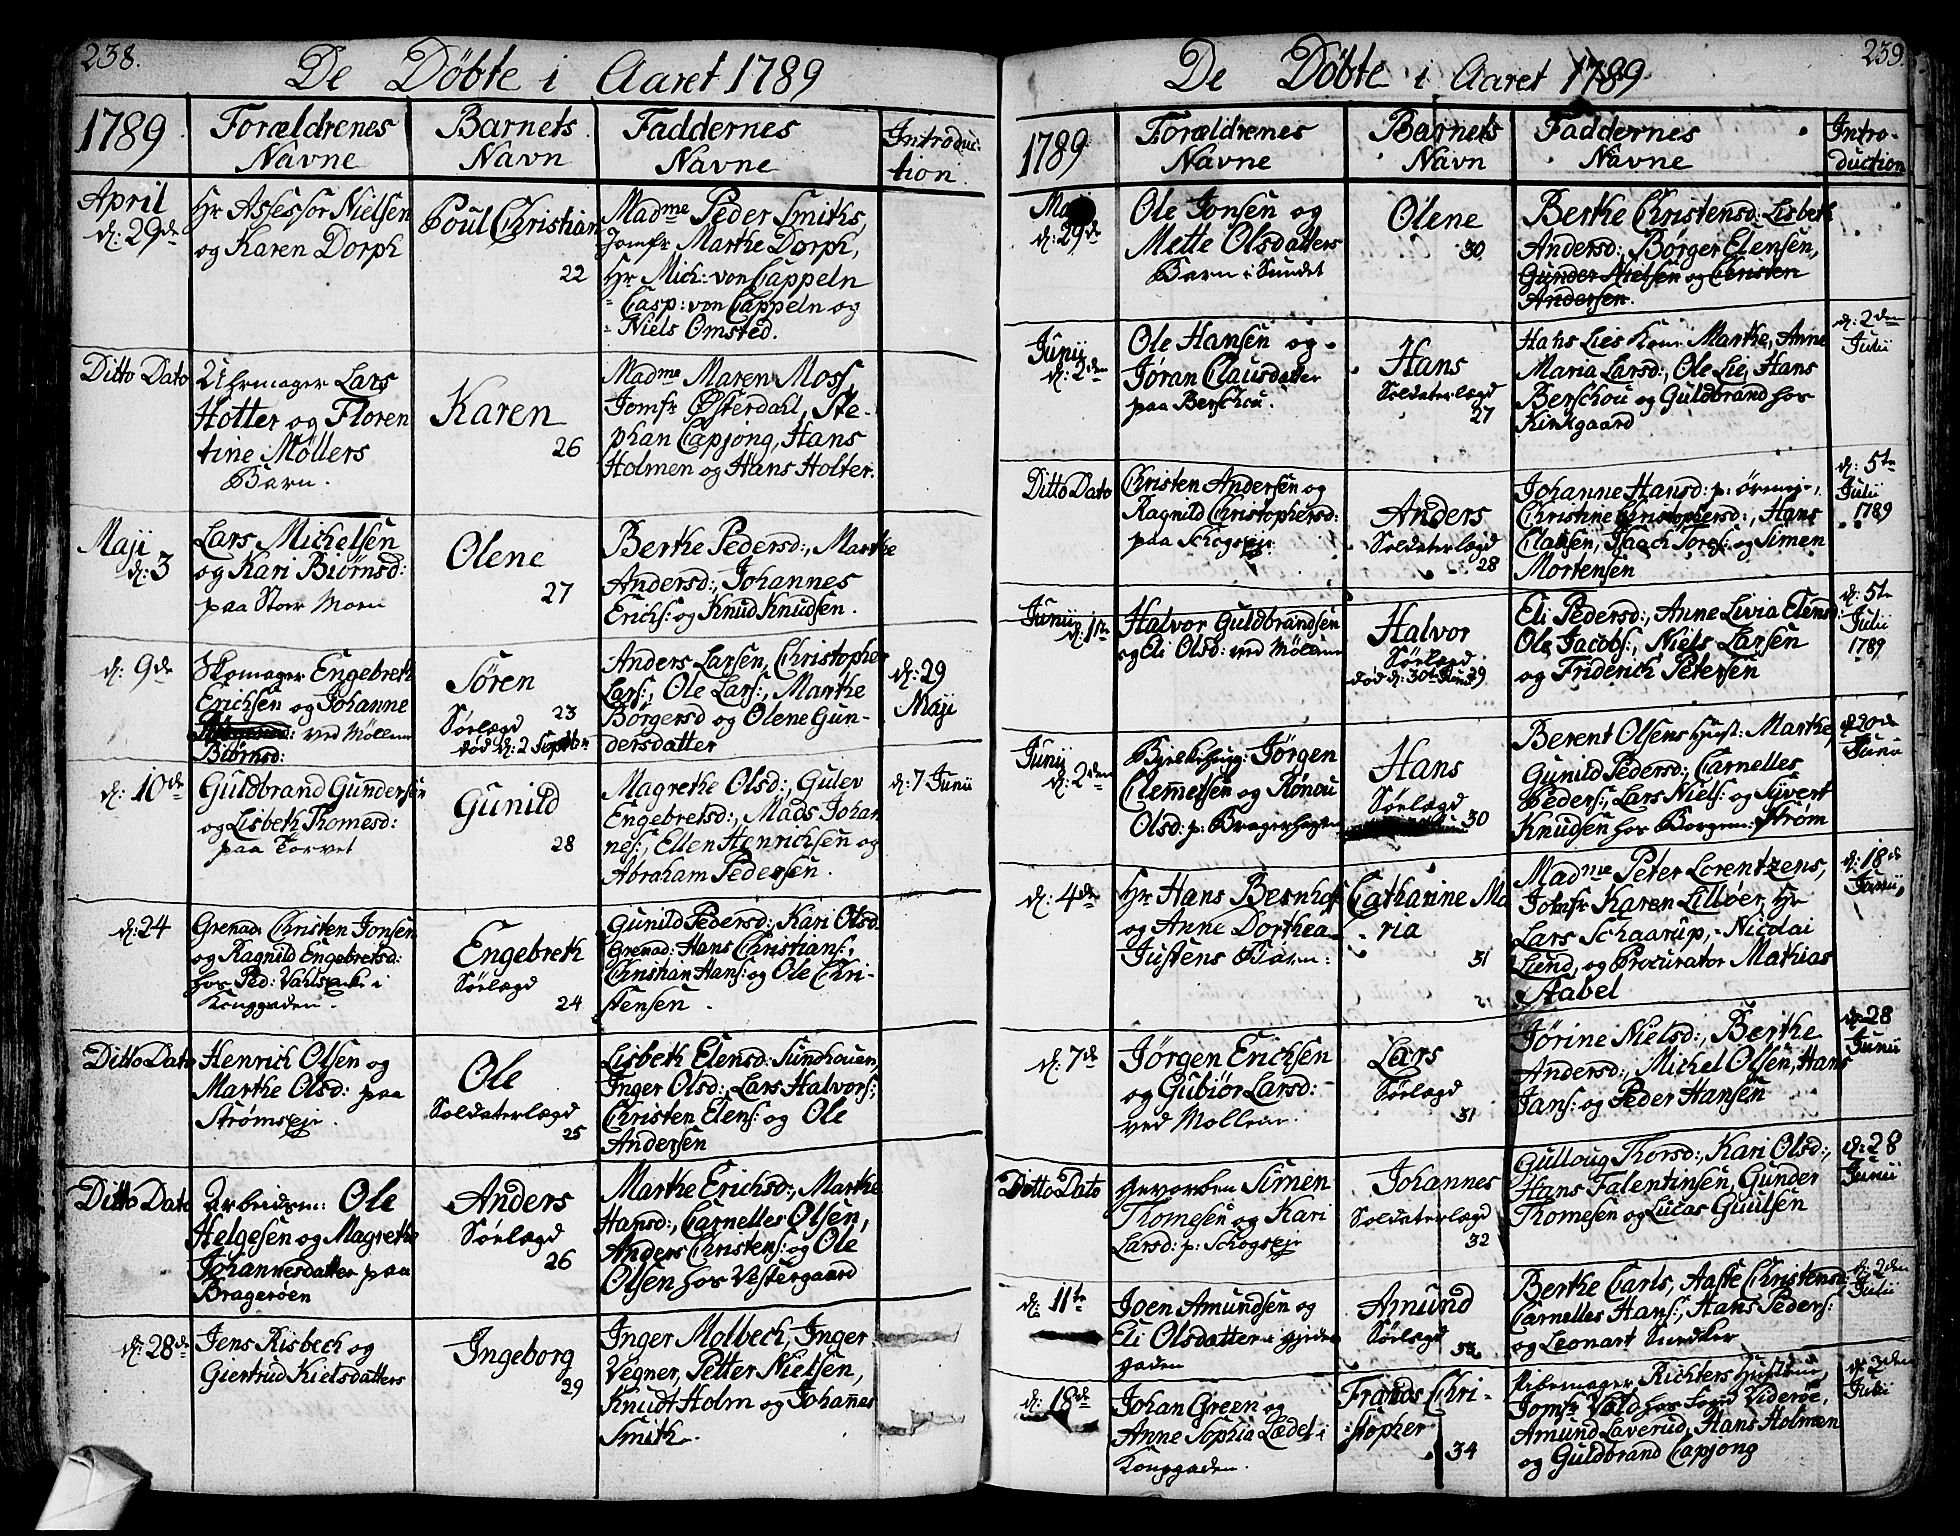 238.
De Döbte i Aaret 1789
1789
Forældrenes
Navne
Barnets
Navn
Faddernes
Navne
Introduc-
tion.
April
d: 29de
Hr Assessor Nielsen
og Karen Dorph
Poul Christian
22
Madme Peder Smiths,
Jomfr Marthe Dorph,
Hr Mich: von Cappeln
Casp: von Cappeln og
Niels Omsted.
Ditto Dato
Uhrmager Lars
Hotter og Floren
tine Möllers
Barn.
Karen
26
Madme Maren Moss,
Jomfr Østerdahl, Ste-
phan Capjong, Hans
Holmen og Hans Holter.
Maji
d: 3
Lars Michelsen
og Kari Biørnsd:
paa Stor Moen
Olene
27
Berthe Pedersd:, Marthe
Andersd:, Johannes
Erichs: og Knud Knudsen.
d: 9de
Skomager Engebreth
Erichsen og Johanne
ved Möllen
Biørnsd:
Sören
Sørlægd 23
død d: 2 Septbr
Anders Larsen, Christopher
Lars:, Ole Lars:, Marthe
Börgersd og Olene Gun-
dersdatter
d: 29
Maji
d: 10de
Guldbrand Gundersen
og Lisbeth Thomesd:
paa Torvet
Gunild
28
Magrethe Olsd:, Gulev
Engebretsd:, Mads Johan
nes:, Ellen Henrichsen og
Abraham Pedersen.
d: 7 Junii
d: 24
Grenad: Christen Jonsen
og Ragnild Engebretsd:
hos Ped: i
Konggaden.
Engebreth
Sørlægd
24
Gunild Pedersd:, Kari Olsd:
Grenad: Hans Christians:,
Christian Hans: og Ole Chri-
stensen.
Ditto Dato
Henrich Olsen og
Marthe Olsd: paa
Strömseje.
Ole
Soldaterlægd
25
Lisbeth Elensd: Sundhouen,
Inger Olsd:, Lars Halvors:,
Christen Elens: og Ole
Andersen
Ditto Dato
Arbeidsm: Ole
Helgesen og Magrethe
Johannesdatter paa
Bragerøen
Anders
Sørlægd
26
Marthe Erichsd:, Marthe
Hansd:, Carnelles Olsen,
Anders Christens: og Ole
Olsen hos Vestergaard
d: 28de
Jens Risbech og
Giertrud Kielsdatters
Ingeborg
29
Inger Molbech, Inger
Vegner, Petter Nielsen,
Knudt Holm og Johannes
Smith.
239.
De Döbte i Aaret 1789
1789
Forældrenes
Navne
Barnets
Navn
Faddernes
Navne
Intro-
duction
Maji
d: 29de
Ole Jonsen og
Mette Olsdatters
Barn i Sundet
Olene
30
Berthe Christensd: Lisbeth
Andersd: Börger Elensen,
Gunder Nielsen og Christen
Andersen.
Junii
d: 2den
Ole Hansen og
Jøran Clausdatter
paa Berschou.
Hans
Soldaterlægd
27
Hans Lies Kone Marthe, Anne
Maria Larsd:, Ole Lie, Hans
Berschou og Guldbrand hos
Kirkgaard
d: 2den
Julii
Ditto Dato
Christen Andersen og
Ragnild Christophersd:
paa Schogseje
Anders
Soldaterlægd
28
Johanne Hansd: p: Öreneje,
Christine Christophersd:, Hans
Clausen, Isaach Tores: og Simen
Mortensen
d: 5te
Julii
1789
Junii
d: 1te
Halvor Guldbrandsen
og Eli Olsd: ved Möllen
Halvor
Sørlægd
død d: 30te Junii 29
Eli Pedersd:, Anne Livia Elensd:
Ole Jacobs:, Niels Larsen
og Friderich Petersen
d: 5te
Julii
1789
Junij
d: 2den
Jørgen
Clemetsen og Rönou
Olsd: p: Bragerhagen
Hans
Sørlægd
30
Berent Olsens Hust: Marthe,
Gunild Pedersd:, Carnelles
Peders:, Lars Niels: og Syvert
Knudsen hos Borgem: Strøm
d: 20de
Junii
d: 4de
Hr Hans Bernhoft
og Anne Dorthea
Justens Børn:
Catharine Ma
ria
31
Madme Peter Lorentzens,
Jomfr Karen Lillöer, Hr
Lars Schaarup, Nicolai
Lund, og Procurator Mathias
Aabel
d: 18de
Junii
d: 7de
Jørgen Erichsen
og Gubiör Larsd:
ved Mollen.
Lars
Sørlægd
31
Jörine Nielsd:, Berthe
Andersd:, Michel Olsen, Hans
Jans: og Peder Hansen
d: 28
Junii
Ditto Dato
Gevorben Simen
Thomesen og Kari
Larsd: p: Schogseje
Johannes
Soldaterlægd
32
Gulloug Thorsd:, Kari Olsd:,
Hans Falentinsen, Gunder
Thomesen og Lucas Guulsen
d: 28
Junii
d: 11te
Joen Amundsen og
Eli Olsdatter i Gjeden
gaden
Amund
Sørlægd
33
Berthe Carls, Aasse Christensd:
Carnelles Hans:, Hans Peders:
og Leonart Snedker
d: 2den
Julii
d: 18de
Johan Green og
Anne Sophia Lædel i
Konggaden.
Frands Chri-
stopher
34
Pibemager Richters Hustrue,
Jomfr Wold hos Sorenf Videröe,
Amund Laverud, Hans Holmen
og Guldbrand Capjong
d: 2den
Julii